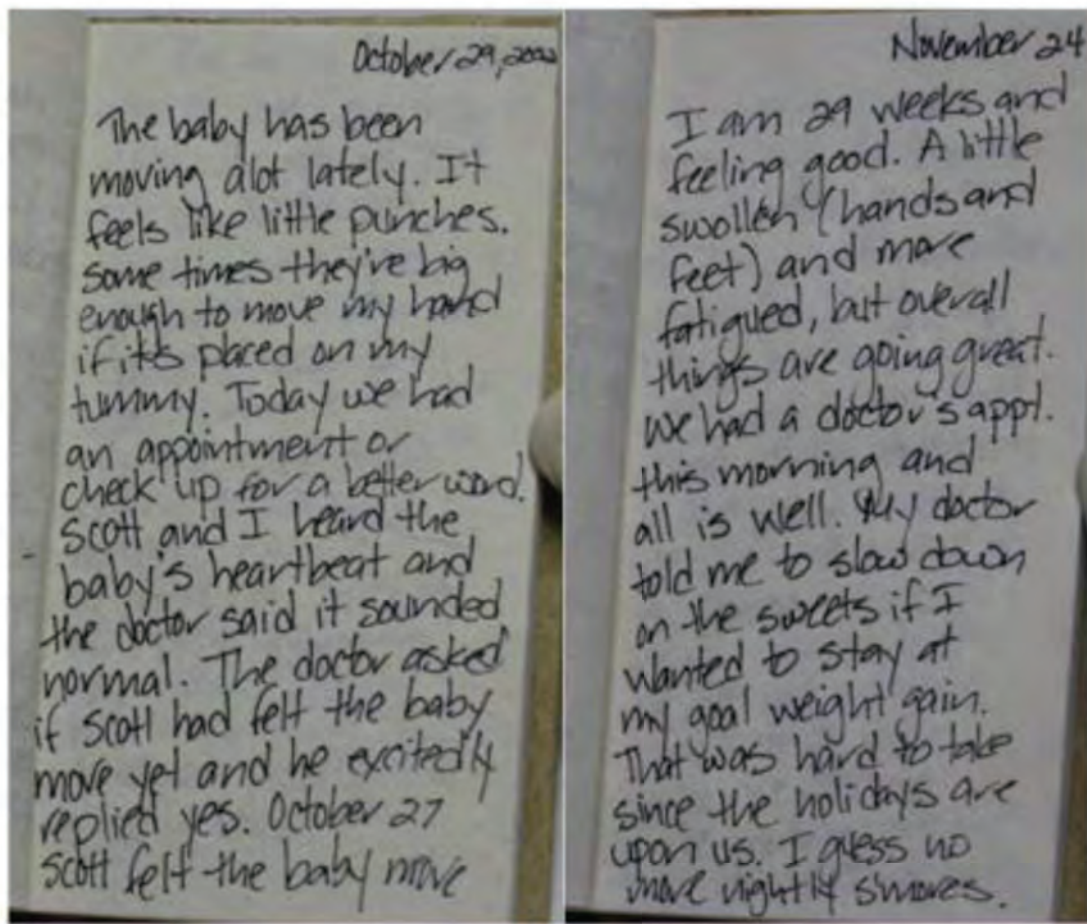 October 29, 2002
The baby has been
moving alot lately. It
feels like little punches.
Some times they're big
enough to move my hand
if it's placed on my
tummy. Today we had
an appointment or
check up for a better word.
Scott and I heard the
baby's heartbeat and
the doctor said it sounded
normal. The doctor asked
if Scott had felt the baby
move yet and he excitedly
replied yes. October 27
Scott felt the baby move
November 24
I am 29 weeks and
feeling good. A little
swollen (hands and
feet) and more
fatigued, but overall
things are going great.
We had a doctor's appt.
this morning and
all is well. My doctor
told me to slow down
on the sweets if I
wanted to stay at
my goal weight gain.
That was hard to take
since the holidays are
upon us. I guess no
more nightly s'mores.